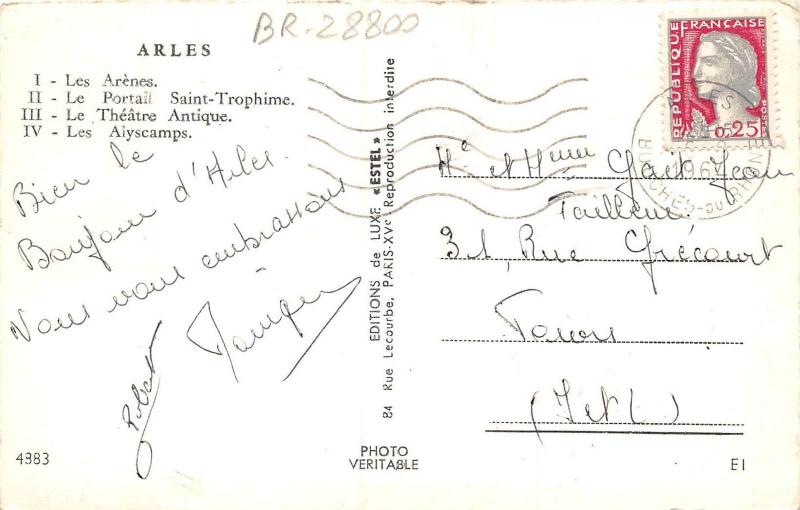 BR-28800
ARLES
I - Les Arènes.
II - Le Portail Saint-Trophime.
III - Le Théâtre Antique.
IV - Les Alyscamps.
Bien le
Bonjour d'Arles.
Nous vous embrassons
Robert
4383
EDITIONS de LUXE «ESTEL»
84 Rue Lecourbe, PARIS-XVe Reproduction interdite
PHOTO
VERITABLE
REPUBLIQUE FRANÇAISE
0,25
POSTES
BOUCHES-DU-RHONE
Mr et Mme Jean
Tailleur
31, Rue Grécourt
Tours
(I et L)
EI